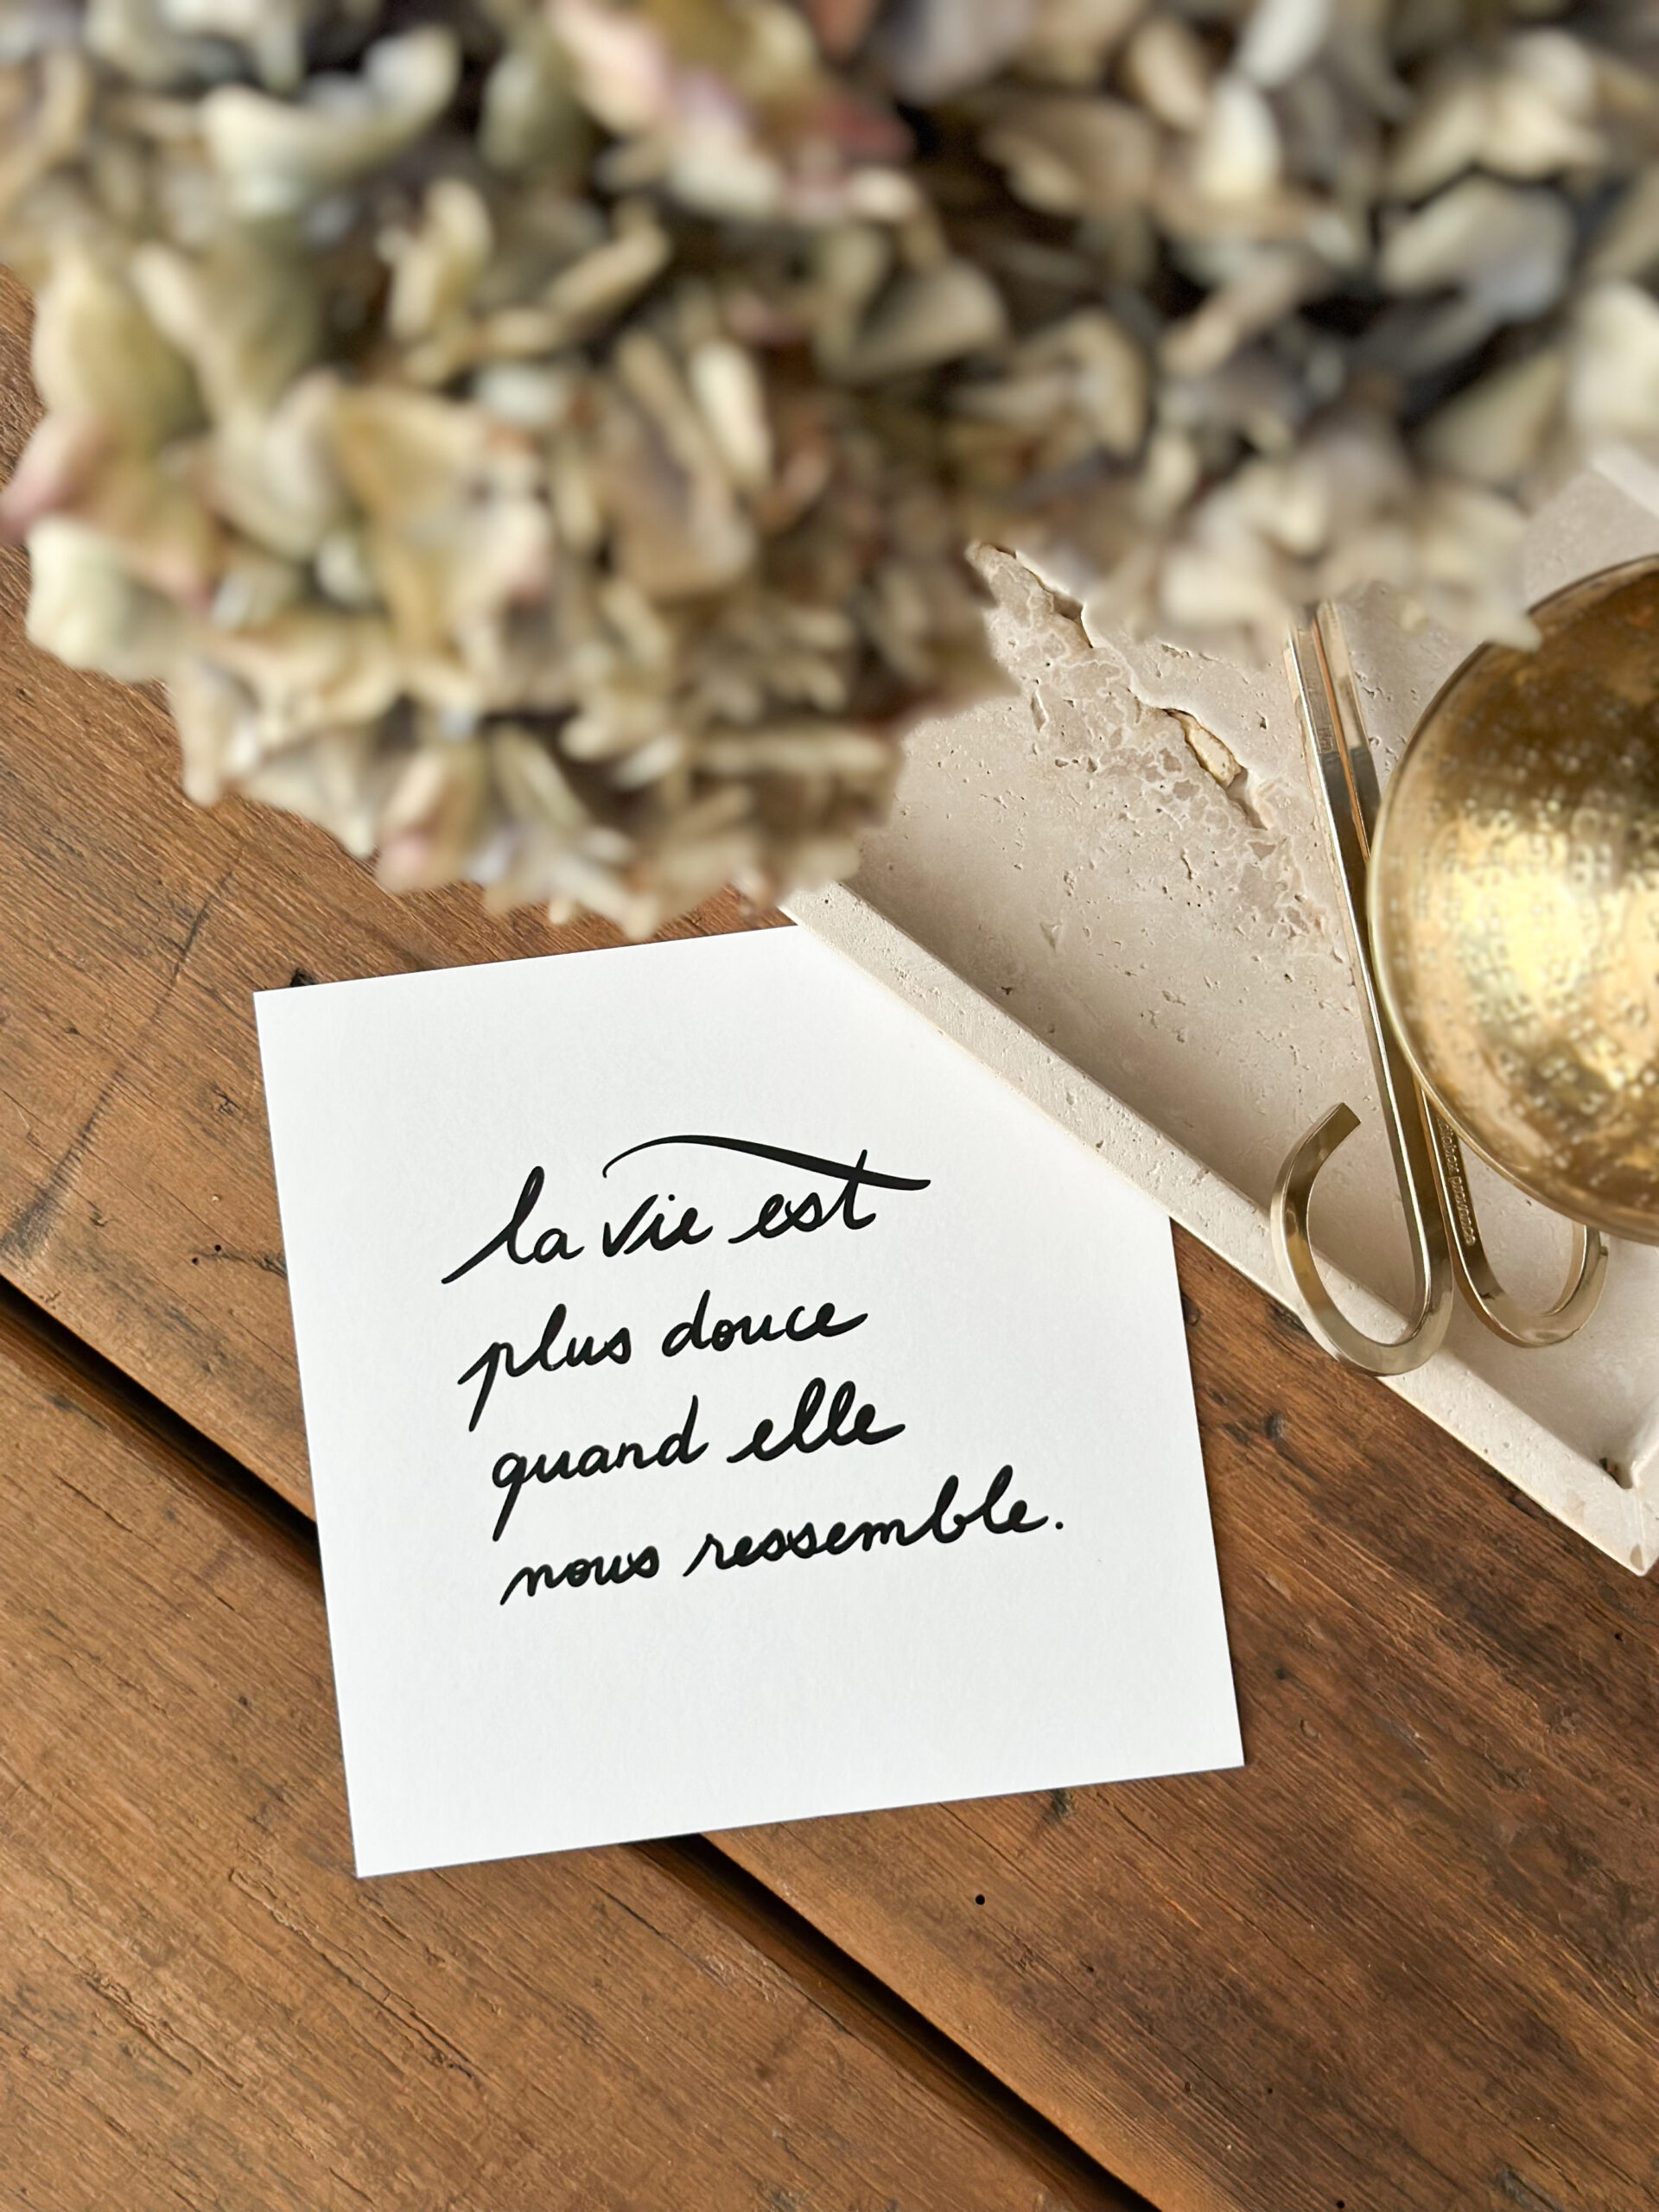 la vie est
plus douce
quand elle
nous ressemble.